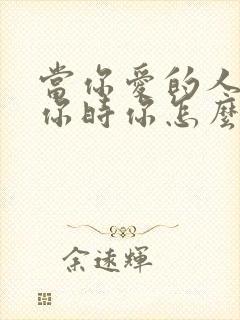 當你愛的人
你時你怎麼
余遠輝